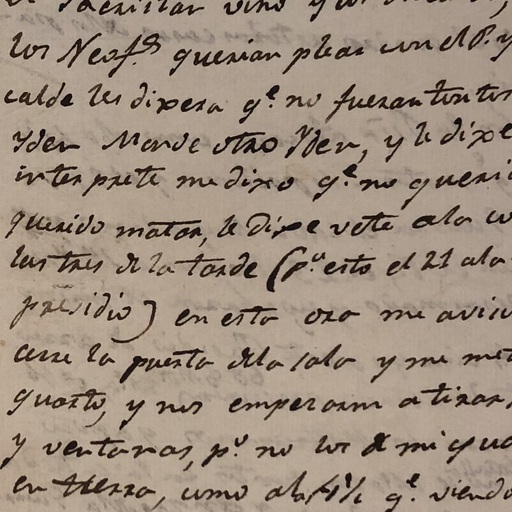 el Sacristan vino y
los Neof.s querian plear con el P. y
calde les dixera q.e no fueran tontos
Yden Mande otro Yden, y le dixe
interprete me dixo q.e no queri
querido matar, le dixe vete a la co
las tres de la tarde (p.r esto el 21 a la
presidio) en esta ora me avis
cerre la puerta de la sala y me me
quarto, y nos empezaron a tirar
y ventanas, p.r no los de mi qua
en tierra, como a la 4 1/2 q.e viendo